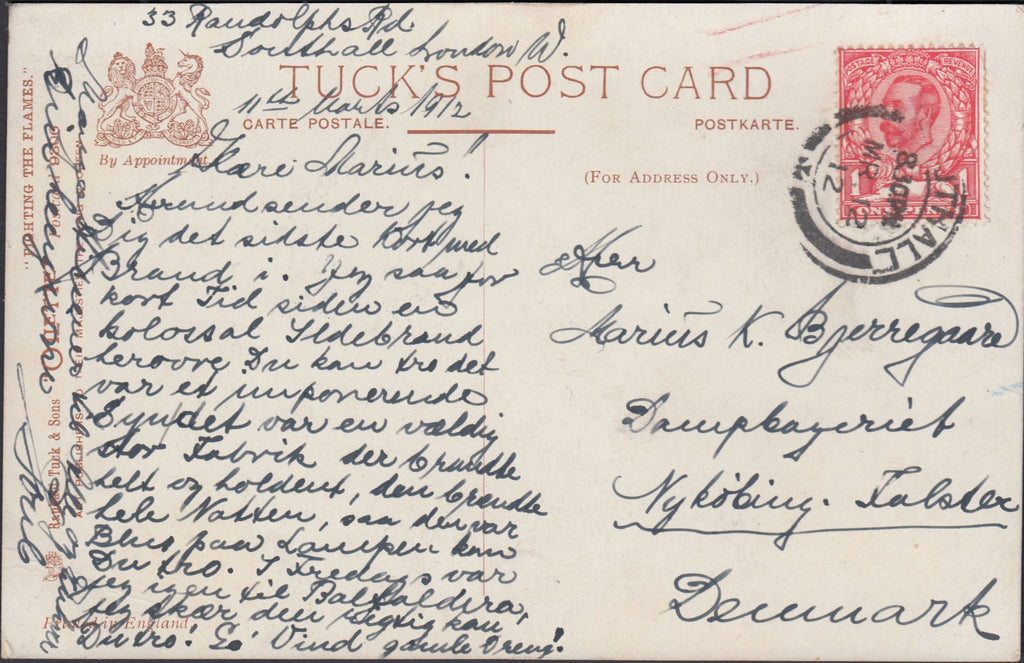 33 Randolphs Rd.
Southall London W.
TUCK'S POST CARD
11th Marts 1912
CARTE POSTALE.
POSTKARTE.
By Appointment
(FOR ADDRESS ONLY.)
POSTAGE REVENUE
8.30PM
MR 12
12
Kære Marius!
sender jeg
Dig det sidste Kort med
Brand i. Jeg saa for
kort Tid siden en
kolossal Ildebrand
herovre, Du kan tro det
var et imponerende
Syn, det var en vældig
stor Fabrik der brændte
helt og holdent, den brændte
hele Natten, saa der var
Blus paa Lampen kan
Du tro. I Fredags var
jeg igen til Bal
jeg skær den rigtig kan
Du tro! gamle Dreng!
Herr
Marius K. Bjerregaard
Dampbageriet
Nykøbing. Falster
Denmark
"FIGHTING THE FLAMES."
Raphael Tuck & Sons
Printed in England.